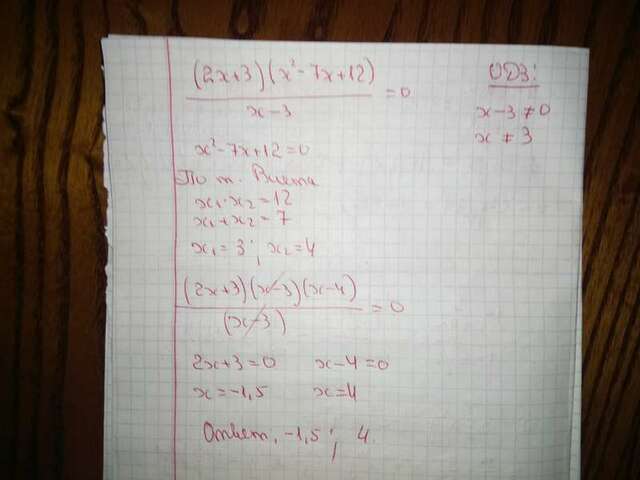 (2x+3)(x²-7x+12)
x-3
=0
ОДЗ:
x-3≠0
x≠3
x²-7x+12=0
По т. Виета
x₁·x₂=12
x₁+x₂=7
x₁=3; x₂=4
(2x+3)(x-3)(x-4)
(x-3)
=0
2x+3=0 x-4=0
x=-1,5 x=4
Ответ, -1,5; 4